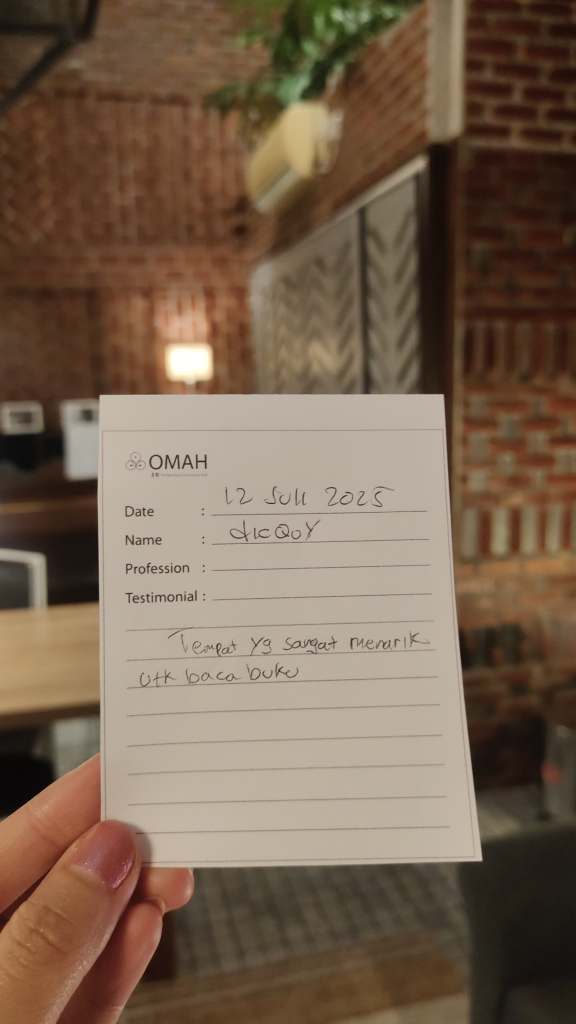 OMAH
Date : 12 Juli 2025
Name : dicQoY
Profession :
Testimonial :
Tempat yg sangat menarik
utk baca buku